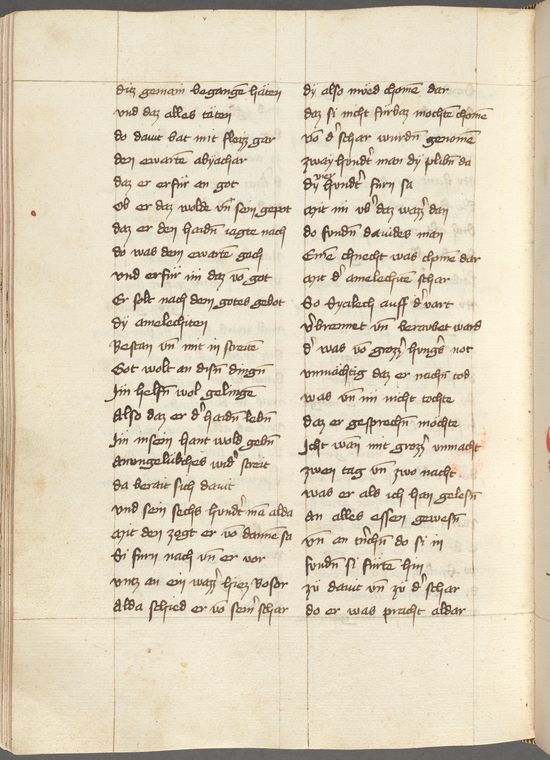 diz gemain begangē häten
vnd daz alles täten
do dauit bat mit fleizz gar
den ewartē abyachar
daz er erfür an got
ob er daz wolde vñ sein gepot
daz er den haidñ iagte nach
do was dem ewartē gach
vnd erfür im daz vō got
Er solt nach dem gotes gebot
dÿ amelechiten
Bestan vñ mit in streitē
Got wolt an disñ dingñ
Im helfñ wol gelingē
Also daz er dʼ haidñ lebñ
Im in sein hant wold gebñ
widʼ streit
da berait sich dauit
vnd sein sechs hundʼt mā alda
mit den zogt er vō dannē sa
Si furn nach vñ er vor
vntz an ein wazzʼ hiez Bosor
Alda schied er vō seinʼ schar
dÿ also müed chomē dar
daz si nicht fürbaz mochtē chomē
vō dʼ schar wurdñ genomē
zway hundʼt man dÿ plibñ da
dÿ vier hundʼt furn sa
mit im vbʼ daz wazzʼ dan
do fundñ dauides man
Einē chnecht was chomē dar
mit dʼ amelechitē schar
do Sycelech auff dʼ vart
vʼbrennet vñ beraubet ward
dʼ was vō grozzʼ hungʼs not
vnmächtig daz er nachñ tod
was vñ im nicht tochte
daz er gesprechñ möchte
Icht wan mit grozzʼ vnmacht
zwen tag vñ zwo nacht
was er als ich han gelesñ
an alles essen gewesñ
vñ an trīchñ do si in
fundñ si fürtē hin
zü dauit vñ zü dʼ schar
do er was pracht aldar